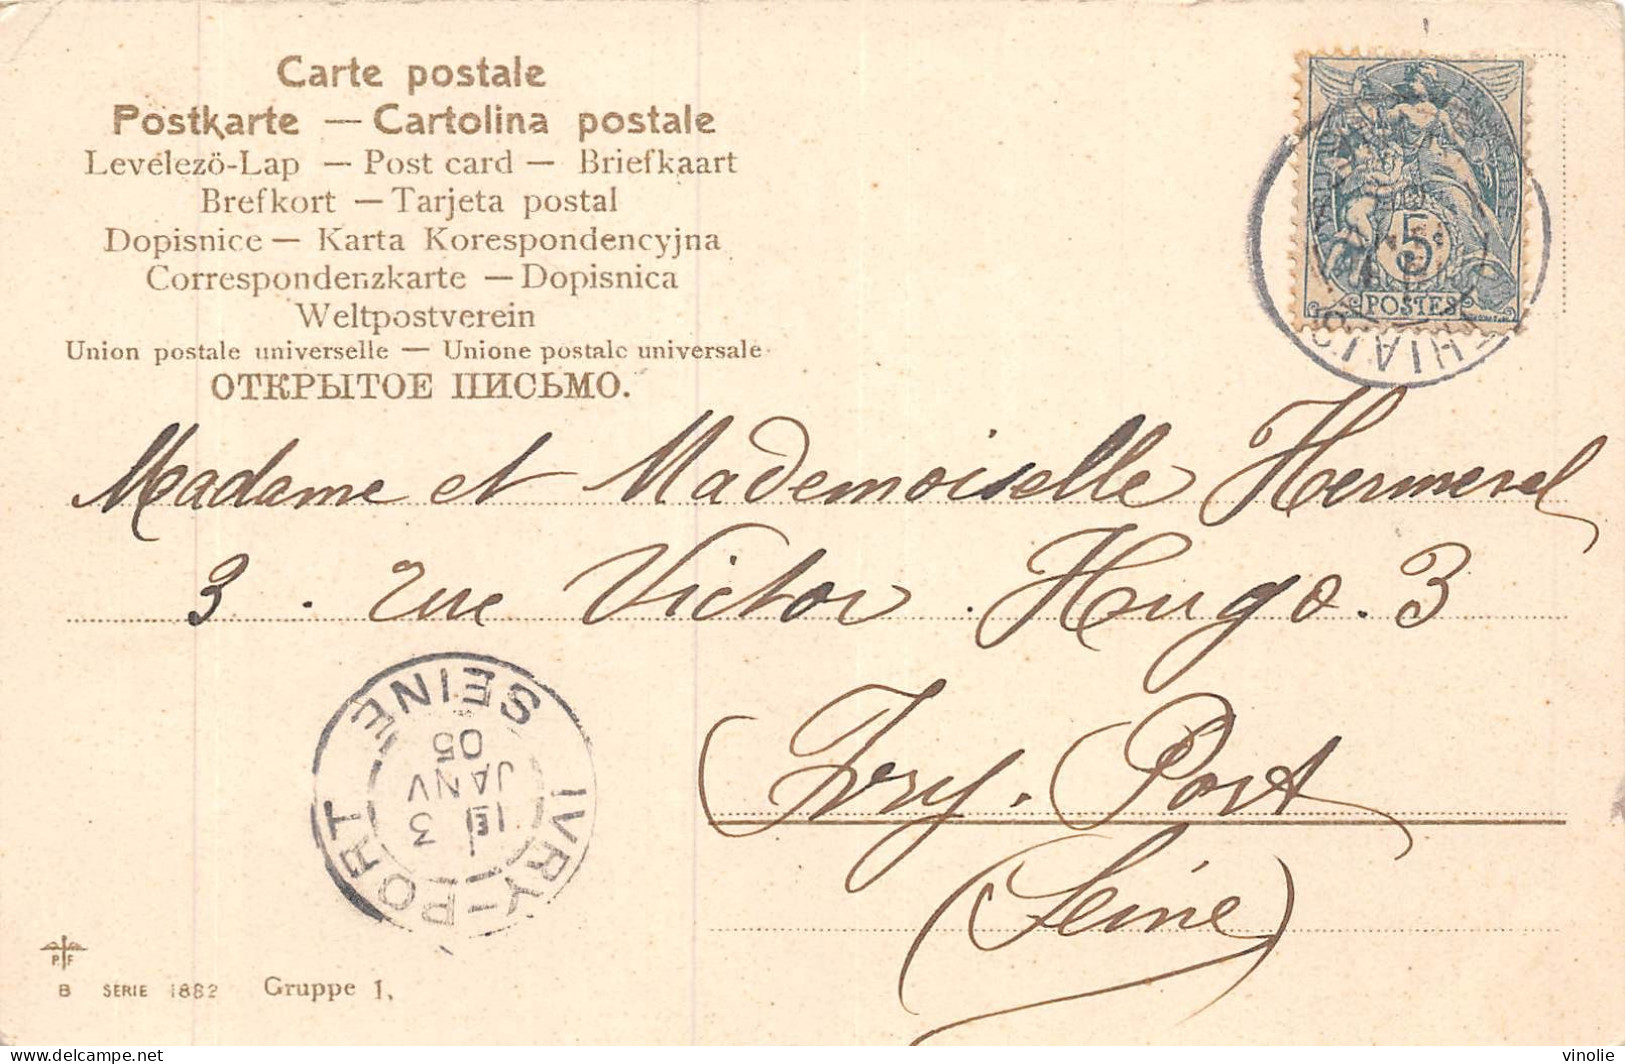 Carte postale
Postkarte — Cartolina postale
Levélezö-Lap — Post card — Briefkaart
Brefkort — Tarjeta postal
Dopisnice — Karta Korespondencyjna
Correspondenzkarte — Dopisnica
Weltpostverein
Union postale universelle — Unione postale universale
ОТКРЫТОЕ ПИСЬМО.
5
POSTES
THIAIS
Madame et Mademoiselle Hermerel
3 . rue Victor Hugo. 3
Ivry. Port
(Seine)
IVRY-PORT
SEINE
3
JANV
05
PF
B SERIE 1882 Gruppe I.
delcampe.net
vinolie